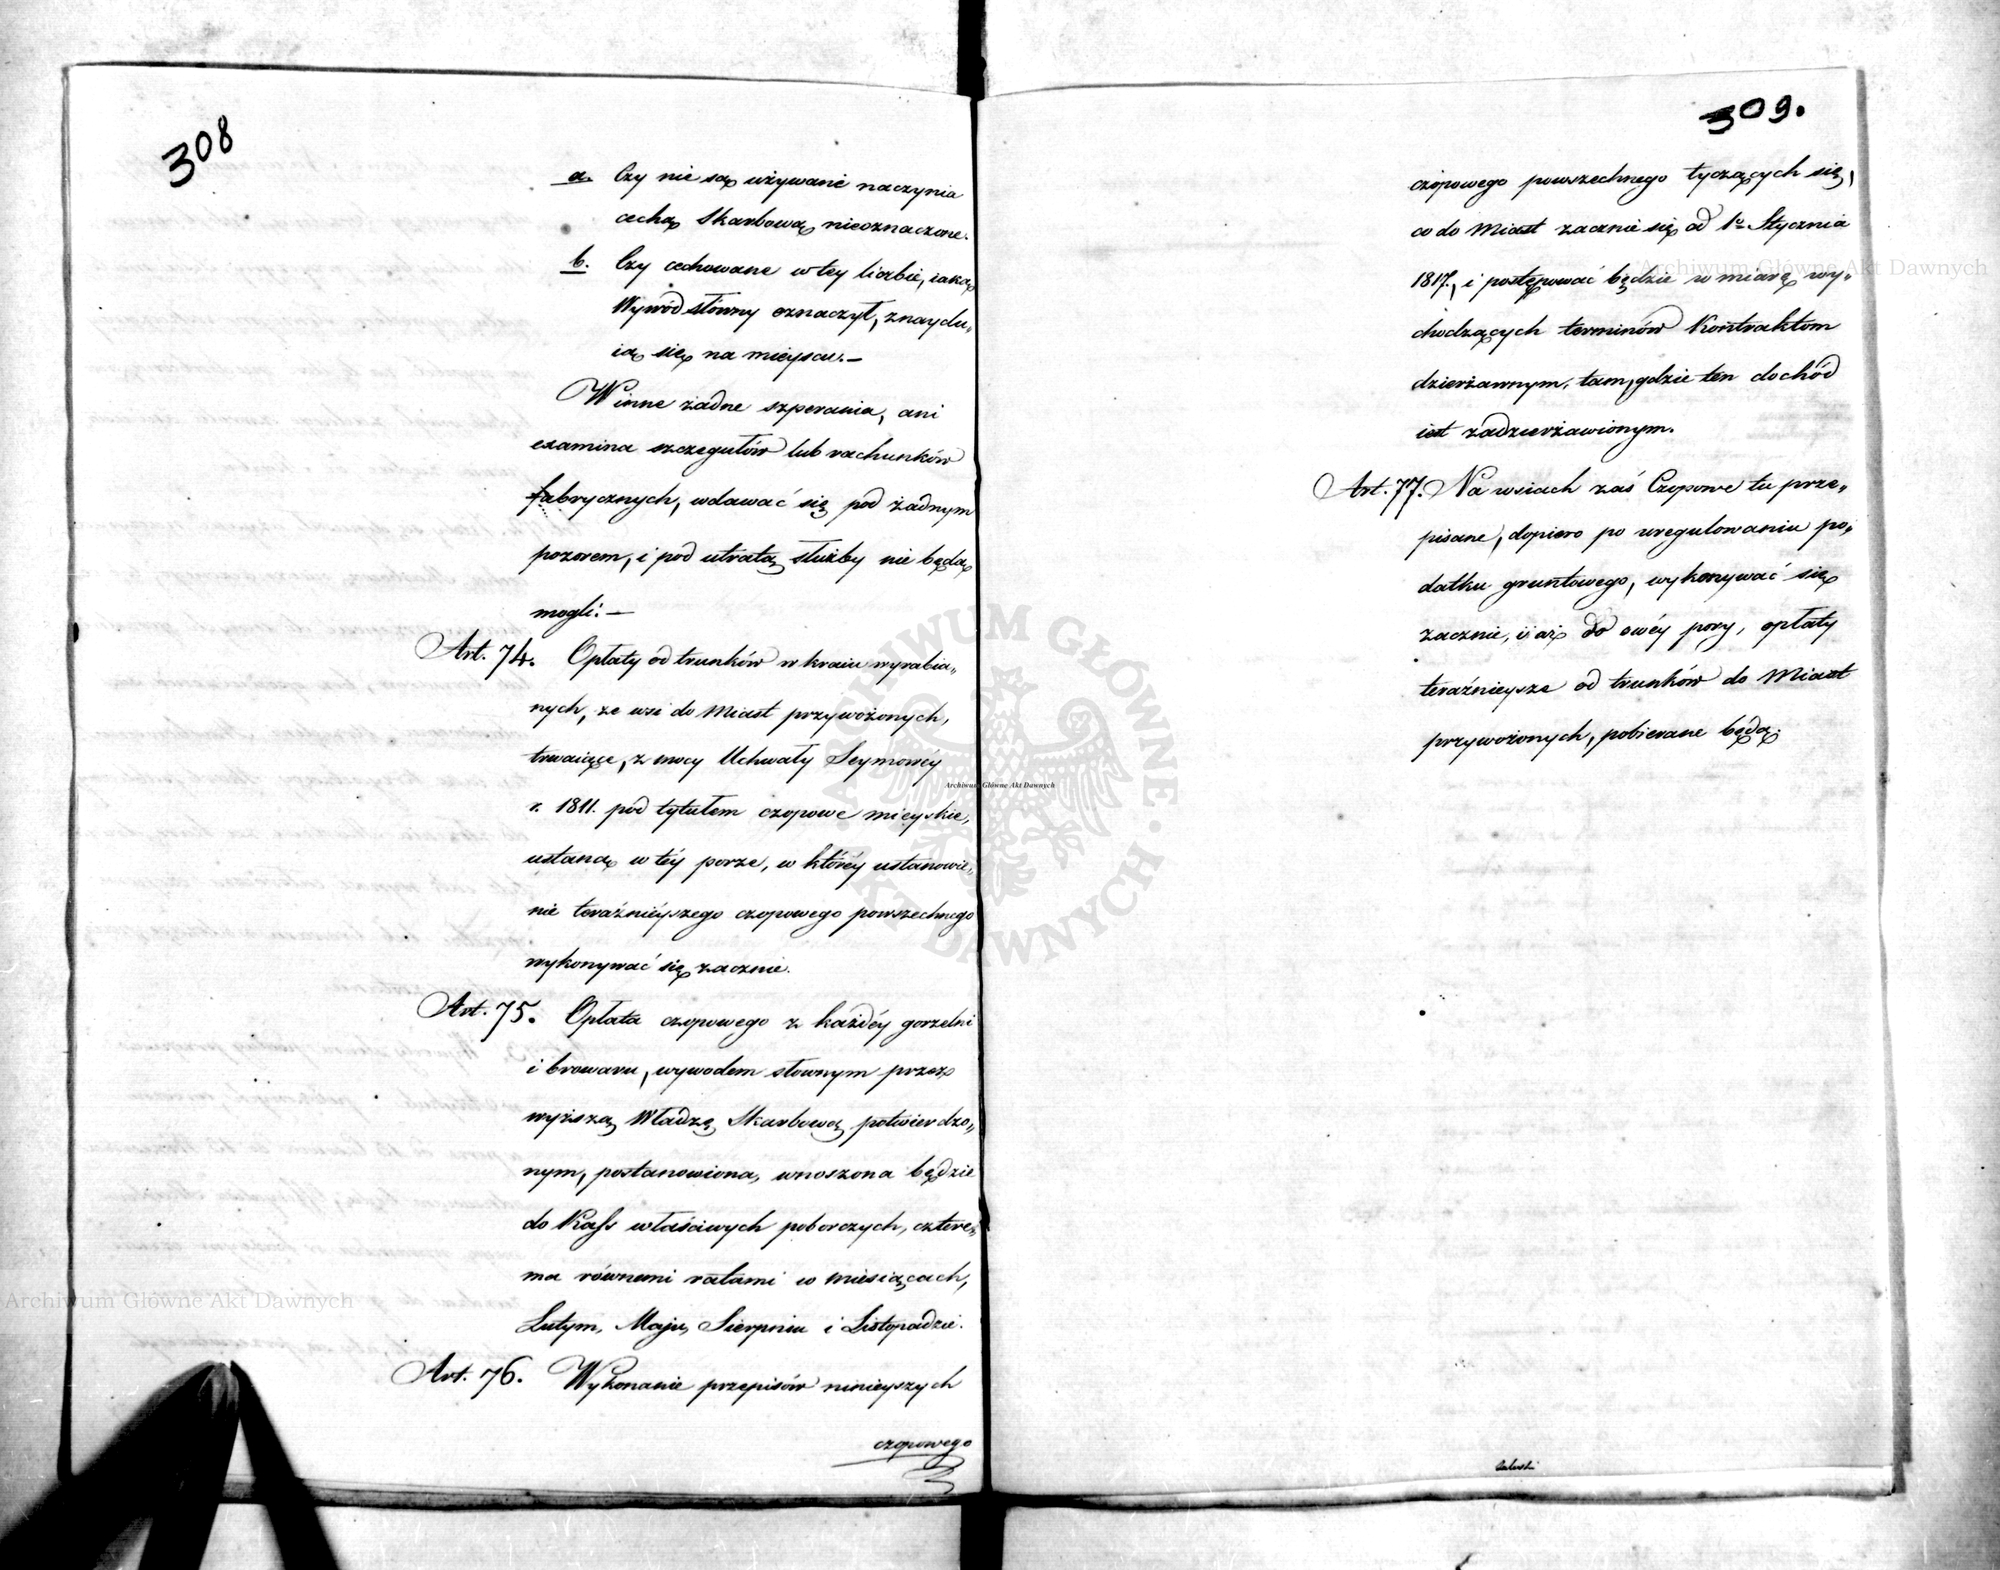 308
a. Czy nie są używane naczynia
cechą Skarbową nieoznaczone.
b. Czy cechowane w tey liczbie, iaką
Wywód słowny oznaczył, znaydu„
ią się na mieyscu.—
Winne żadne szperania, ani
examina szczegułów lub rachunków
fabrycznych, wdawać się pod żadnym
pozorem, i pod utratą służby nie będą
mogli: —
Art. 74. Opłaty od trunków w kraiu wyrabia„
nych, ze wsi do Miast przywożonych,
trwaiące, z mocy Uchwały Seymowéy
r. 1811. pod tytułem czopowe mieyskie,
ustaną w téy porze, w któréy ustanowie„
nie teraźnieyszego czopowego powszechnego
wykonywać się zacznie.
Art. 75. Opłata czopowego z każdéy gorzelni
i browaru, wywodem słownym przez
wyższą Władzę Skarbową potwierdzo„
nym, postanowiona, wnoszona będzie
do Kass właściwych poborczych, cztere„
ma równemi ratami w miesiącach,
Lutym, Maju, Sierpniu i Listopadzie.
Art. 76. Wykonanie przepisów ninieyszych
czopowego
309.
czopowego powszechnego tyczących się,
co do Miast zacznie się od 1o Stycznia
1817., i postępować będzie w miarę wy„
chodzących terminów Kontraktom
dzierżawnym, tam, gdzie ten dochód
iest zadzierżawionym.
Art. 77. Na wsiach zaś Czopowe tu prze„
pisane, dopiero po uregulowaniu po„
datku gruntowego, wykonywać się
zacznie, i aż do owéy pory, opłaty
teraźnieysze od trunków do Miast
przywożonych, pobierane będą.
Archiwum Główne Akt Dawnych
Archiwum Główne Akt Dawnych
Archiwum Główne Akt Dawnych
ARCHIWUM GŁÓWNE AKT DAWNYCH